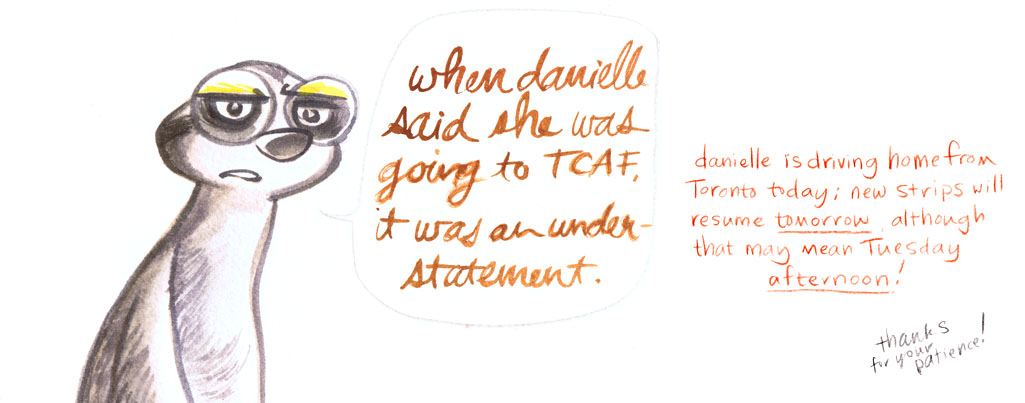 when danielle
said she was
going to TCAF,
it was an under-
statement.
danielle is driving home from
Toronto today; new strips will
resume tomorrow although
that may mean Tuesday
afternoon!
thanks
for your
patience!